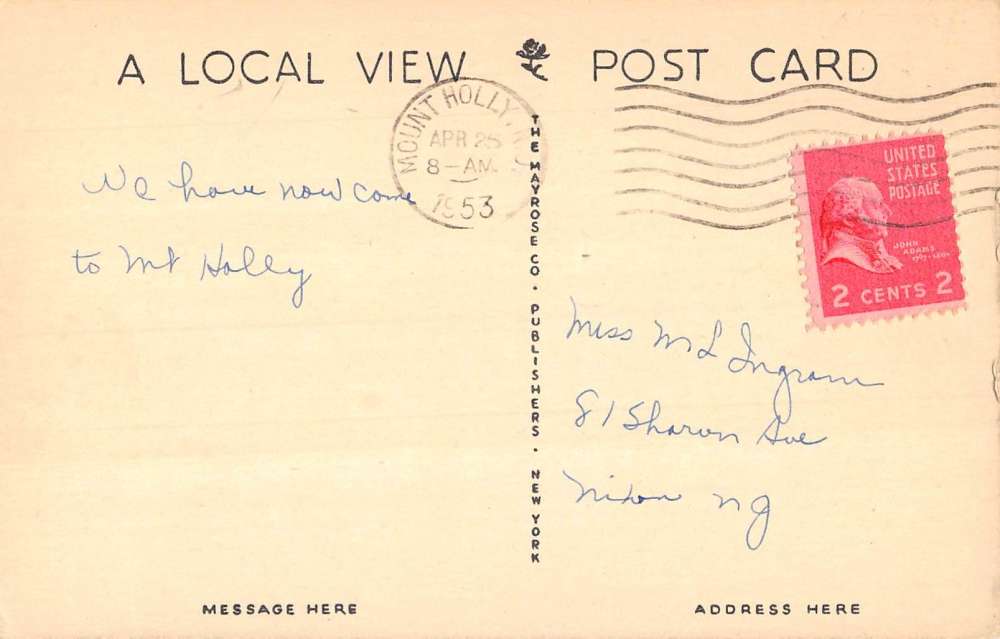 A LOCAL VIEW POST CARD
MOUNT HOLLY, N.J.
APR 25
8-AM
1953
UNITED
STATES
POSTAGE
JOHN
ADAMS
2 CENTS 2
We have now come
to Mt Holly
THE MAYROSE CO. PUBLISHERS. NEW YORK
Miss M L Ingram
81 Sharon Ave
Nixon NJ
MESSAGE HERE
ADDRESS HERE